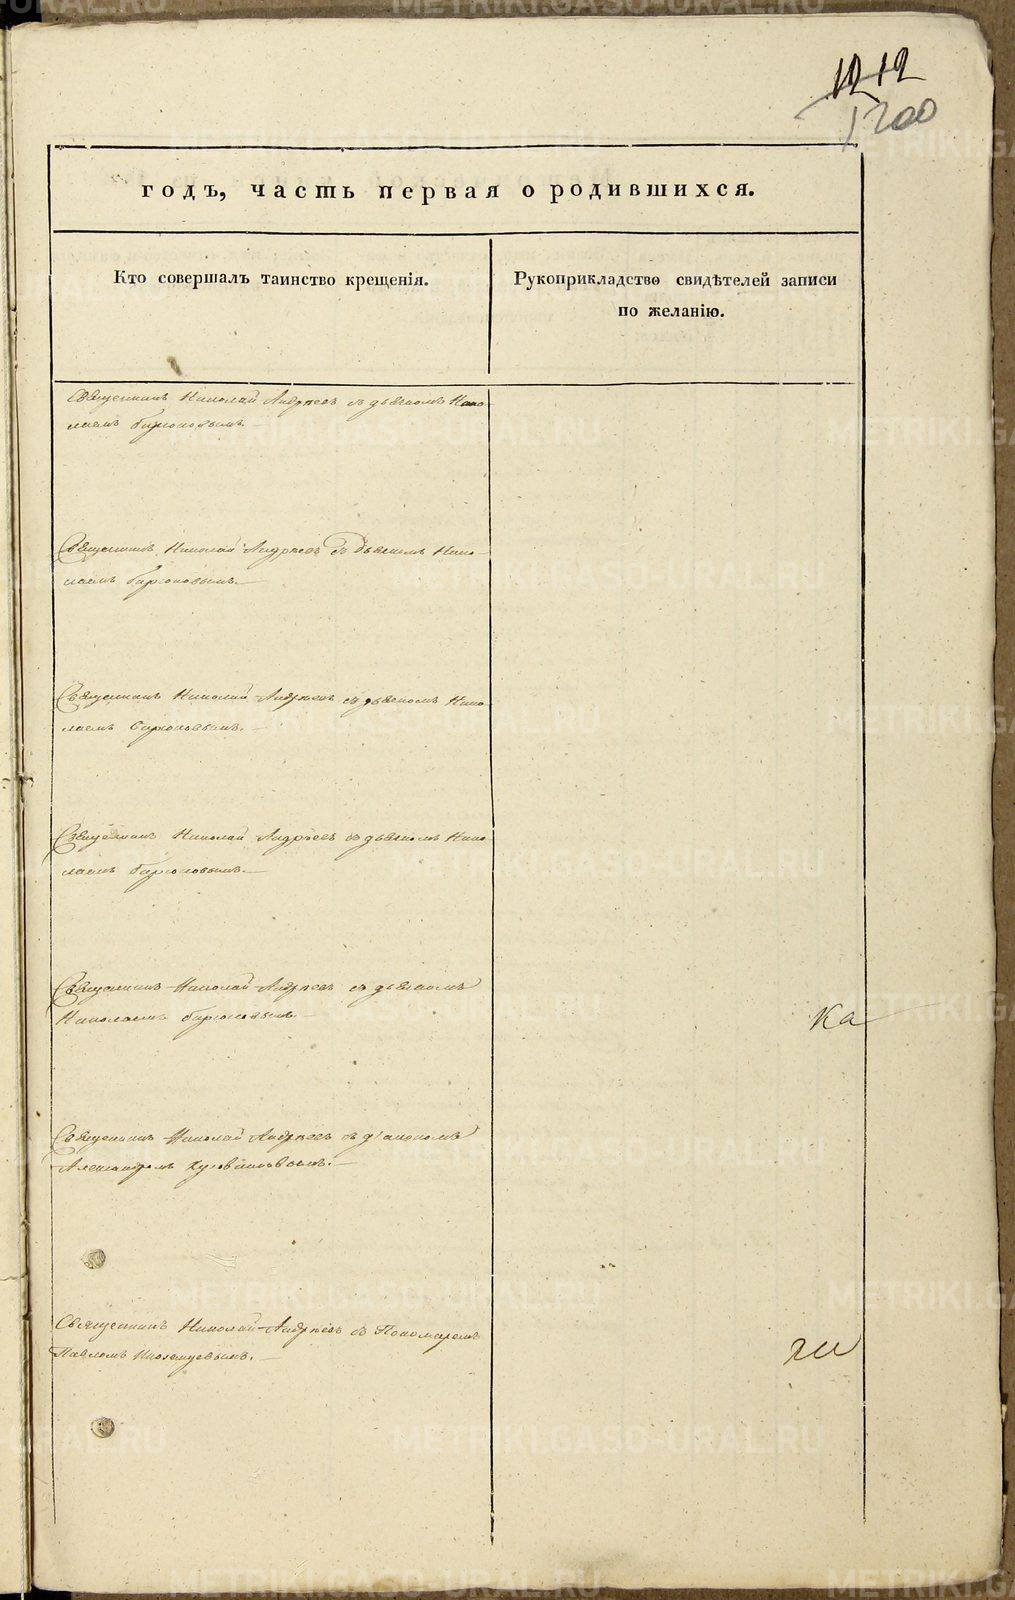 1212
1200
годъ, часть первая о родившихся.
Кто совершалъ таинство крещенія.
Рукоприкладство свидѣтелей записи
по желанію.
Священникъ Николай Андреевъ съ дьячкомъ Нико-
лаемъ Бирюковымъ.
Священникъ Николай Андреевъ съ дьячкомъ Нико-
лаемъ Бирюковымъ.
Священникъ Николай Андреевъ съ дьячкомъ Нико-
лаемъ Бирюковымъ.
Священникъ Николай Андреевъ съ дьячкомъ Нико-
лаемъ Бирюковымъ.
Священникъ Николай Андреевъ съ дьячкомъ
Николаемъ Бирюковымъ.
ка
Священникъ Николай Андреевъ съ діакономъ
Александромъ
Священникъ Николай Андреевъ съ Пономаремъ
Павломъ Иноземцевымъ.
ги
METRIKI.GASO-URAL.RU